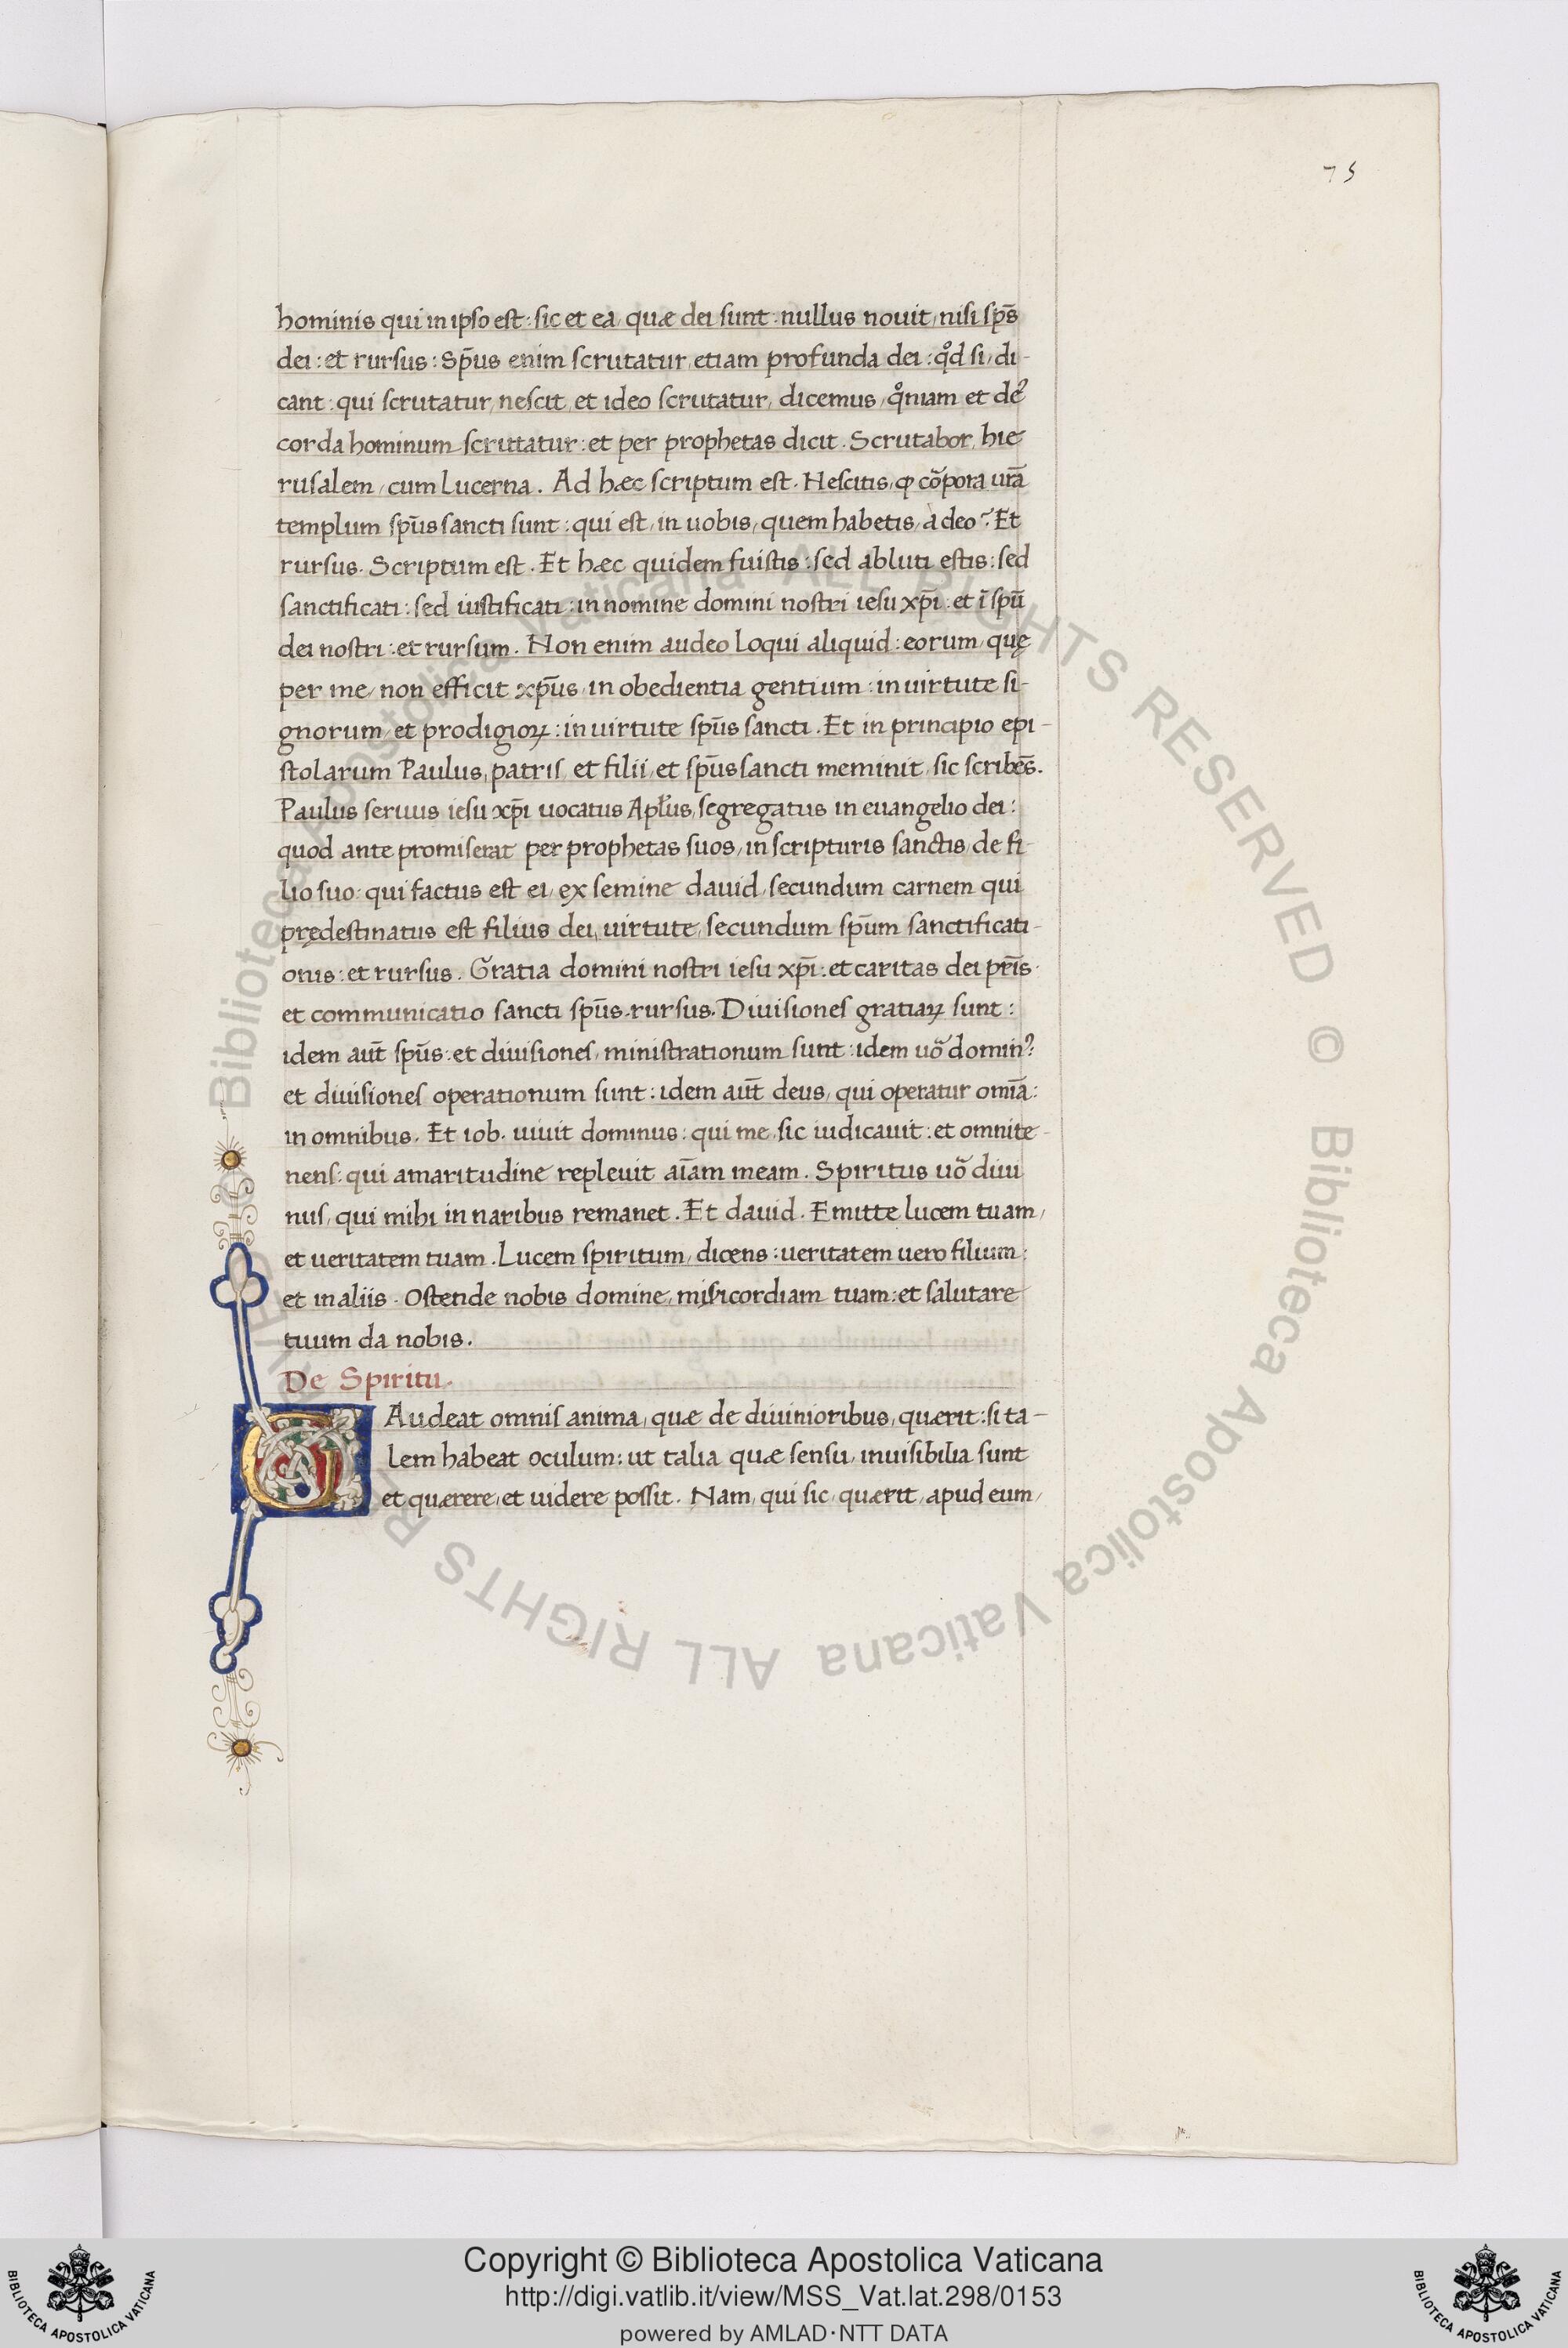 75
hominis qui in ipso est: sic et ea, quæ dei sunt: nullus nouit, nisi sp̄s
dei: et rursus: Sp̄us enim scrutatur, etiam profunda dei: qͦd si, di-
cant: qui scrutatur, nescit, et ideo scrutatur, dicemus, qͦniam et de᾽
corda hominum scrutatur: et per prophetas dicit. Scrutabor, hie
rusalem, cum Lucerna. Ad hæc scriptum est. Nescitis, ꝙ cōpora ur̄a
templum sp̄us sancti sunt: qui est, in uobis, quem habetis, à deo? Et
rursus. Scriptum est. Et hæc quidem fuistis: sed abluti estis: sed
sanctificati: sed iustificati: in nomine domini nostri iesu xp̄i: et ī spū
dei nostri: et rursum. Non enim audeo Loqui aliquid: eorum, quę
per me, non efficit xp̄us, in obedientia gentium: in uirtute si-
gnorum, et prodigioꝝ: in uirtute sp̄us sancti. Et in principio epi-
stolarum Paulus, patris, et filii, et sp̄us sancti meminit, sic scribēs.
Paulus seruus iesu xp̄i uocatus Apl̄us, segregatus in euangelio dei:
quod ante promiserat per prophetas suos, in scripturis sanctis, de fi-
lio suo: qui factus est ei, ex semine dauid, secundum carnem qui
prędestinatus est filius dei, uirtute, secundum sp̄um sanctificati-
onis: et rursus. Gratia domini nostri iesu xp̄i: et caritas dei pr̄is.
et communicatio sancti sp̄us. rursus. Diuisiones gratiaꝝ sunt:
idem aut̄ sp̄us: et diuisiones, ministrationum sunt: idem uō domin᾽:
et diuisiones operationum sunt: idem aut̄ deus, qui operatur omīa:
in omnibus. Et iob. uiuit dominus: qui me, sic iudicauit: et omnite-
nens: qui amaritudine repleuit aīam meam. Spiritus uō diui
nus, qui mihi in naribus remanet. Et dauid. Emitte lucem tuam,
et ueritatem tuam. Lucem spiritum, dicens: ueritatem uero filium:
et in aliis. Ostende nobis domine, misericordiam tuam: et salutare
tuum da nobis.
De Spiritu.
G Audeat omnis anima, quæ de diuinioribus, quærit: si ta-
lem habeat oculum: ut talia quæ sensu, inuisibilia sunt
et quærere, et uidere possit. Nam, qui sic, quærit, apud eum,
© Biblioteca Apostolica Vaticana ALL RIGHTS RESERVED © Biblioteca Apostolica Vaticana ALL RIGHTS RESERVED
BIBLIOTECA APOSTOLICA VATICANA
Copyright © Biblioteca Apostolica Vaticana
http://digi.vatlib.it/view/MSS_Vat.lat.298/0153
powered by AMLAD·NTT DATA
BIBLIOTECA APOSTOLICA VATICANA